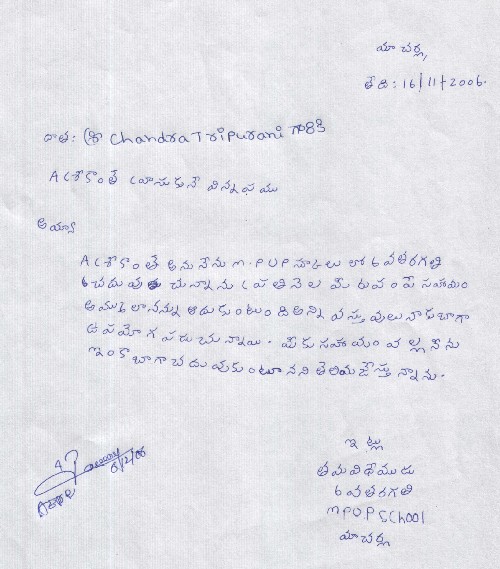 మాచర్ల,
తేది: 16/11/2006.
దాత: శ్రీ Chandra Tripurani గారికి
A శ్రీకాంత్ వ్రాసుకునే విన్నపము
అయ్యా
A శ్రీకాంత్ అను నేను M.P.U.P స్కూలు లో 6 వతరగతి
చదువు చున్నాను ప్రతి నెల మీరు పంపే సహాయం
నన్ను ఆదుకుంటుంది అన్ని వస్తువులు నాకు బాగా
ఉపయోగ పడుచున్నాయి. మీకు సహాయం వల్ల నేను
ఇంకా బాగా చదువుకుంటూనని తెలియజేస్తున్నాను.
ఇట్లు
తమ విధేయుడు
6 వతరగతి
MPUP School
మాచర్ల
6/12/06